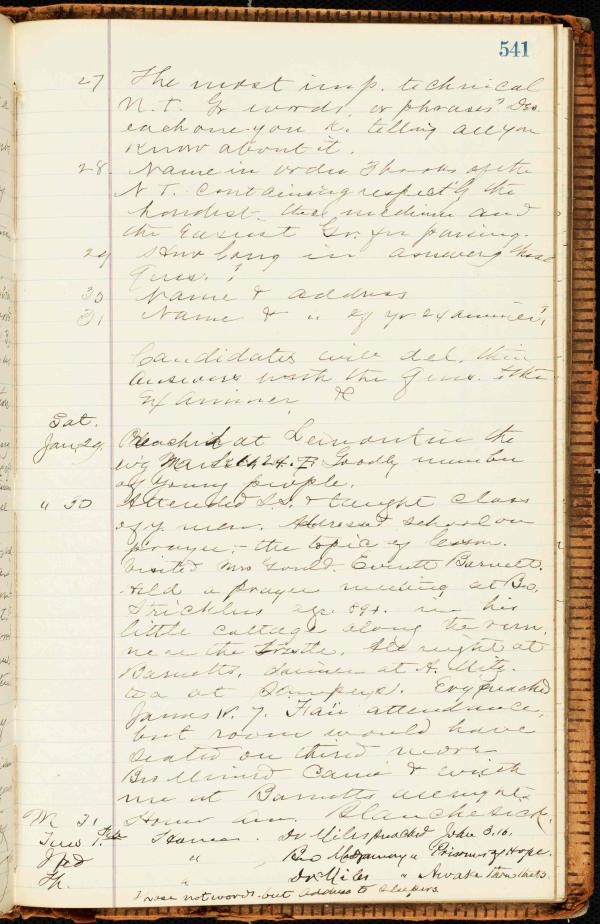 541
27 The most imp. technical
N. T. Gr words, or phrases? Des.
each one you k. telling all you
know about it.
28. Name in order 3 books of the
N T. containing respect'ly the
hardest, the medium and
the Easiest Gr. for parsing.
29 How long in answering these
Ques.?
30 Name & address
31 Name & " of yr examiner,
Candidates will del. their
answers with the Ques. to the
Examiner &c
Sat.
Jan 29. Preached at Lemont in the
ev'g Goodly number
of young people.
" 30 Attended S.S. & taught class
of y. men. Addressed school on
prayer, - the topic of lesson.
Visited Mrs Everett Barnett.
Held a prayer meeting at Bro.
age 89 in his
little cottage along the run,
near the All night at
Barnetts, dinner at A.
tea at Evg preached
James Fair attendance,
but room would have
seated one third more
Bro came & with
me at Barnetts all night.
M 31 Home Blanche sick.
Tues 1. Feb Home. Dr Miles preached John 3.16.
Wed " Bro " Prisoners of Hope.
Th. " Dr Miles " Awake thou that s.
not words. but address to sleepers.